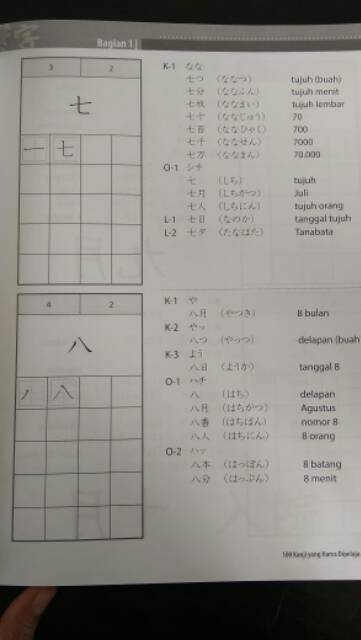 Bagian 1
3 2
七
一 七
K-1 なな
七つ (ななつ) tujuh (buah)
七分 (ななふん) tujuh menit
七枚 (ななまい) tujuh lembar
七十 (ななじゅう) 70
七百 (ななひゃく) 700
七千 (ななせん) 7000
七万 (ななまん) 70.000
O-1 シチ
七 (しち) tujuh
七月 (しちがつ) Juli
七人 (しちにん) tujuh orang
L-1 七日 (なのか) tanggal tujuh
L-2 七夕 (たなばた) Tanabata
4 2
八
ノ 八
K-1 や
八月 (やつき) 8 bulan
K-2 やっ
八つ (やっつ) delapan (buah
K-3 よう
八日 (ようか) tanggal 8
O-1 ハチ
八 (はち) delapan
八月 (はちがつ) Agustus
八番 (はちばん) nomor 8
八人 (はちにん) 8 orang
O-2 ハッ
八本 (はっぽん) 8 batang
八分 (はっぷん) 8 menit
100 Kanji yang Harus Dipelaja